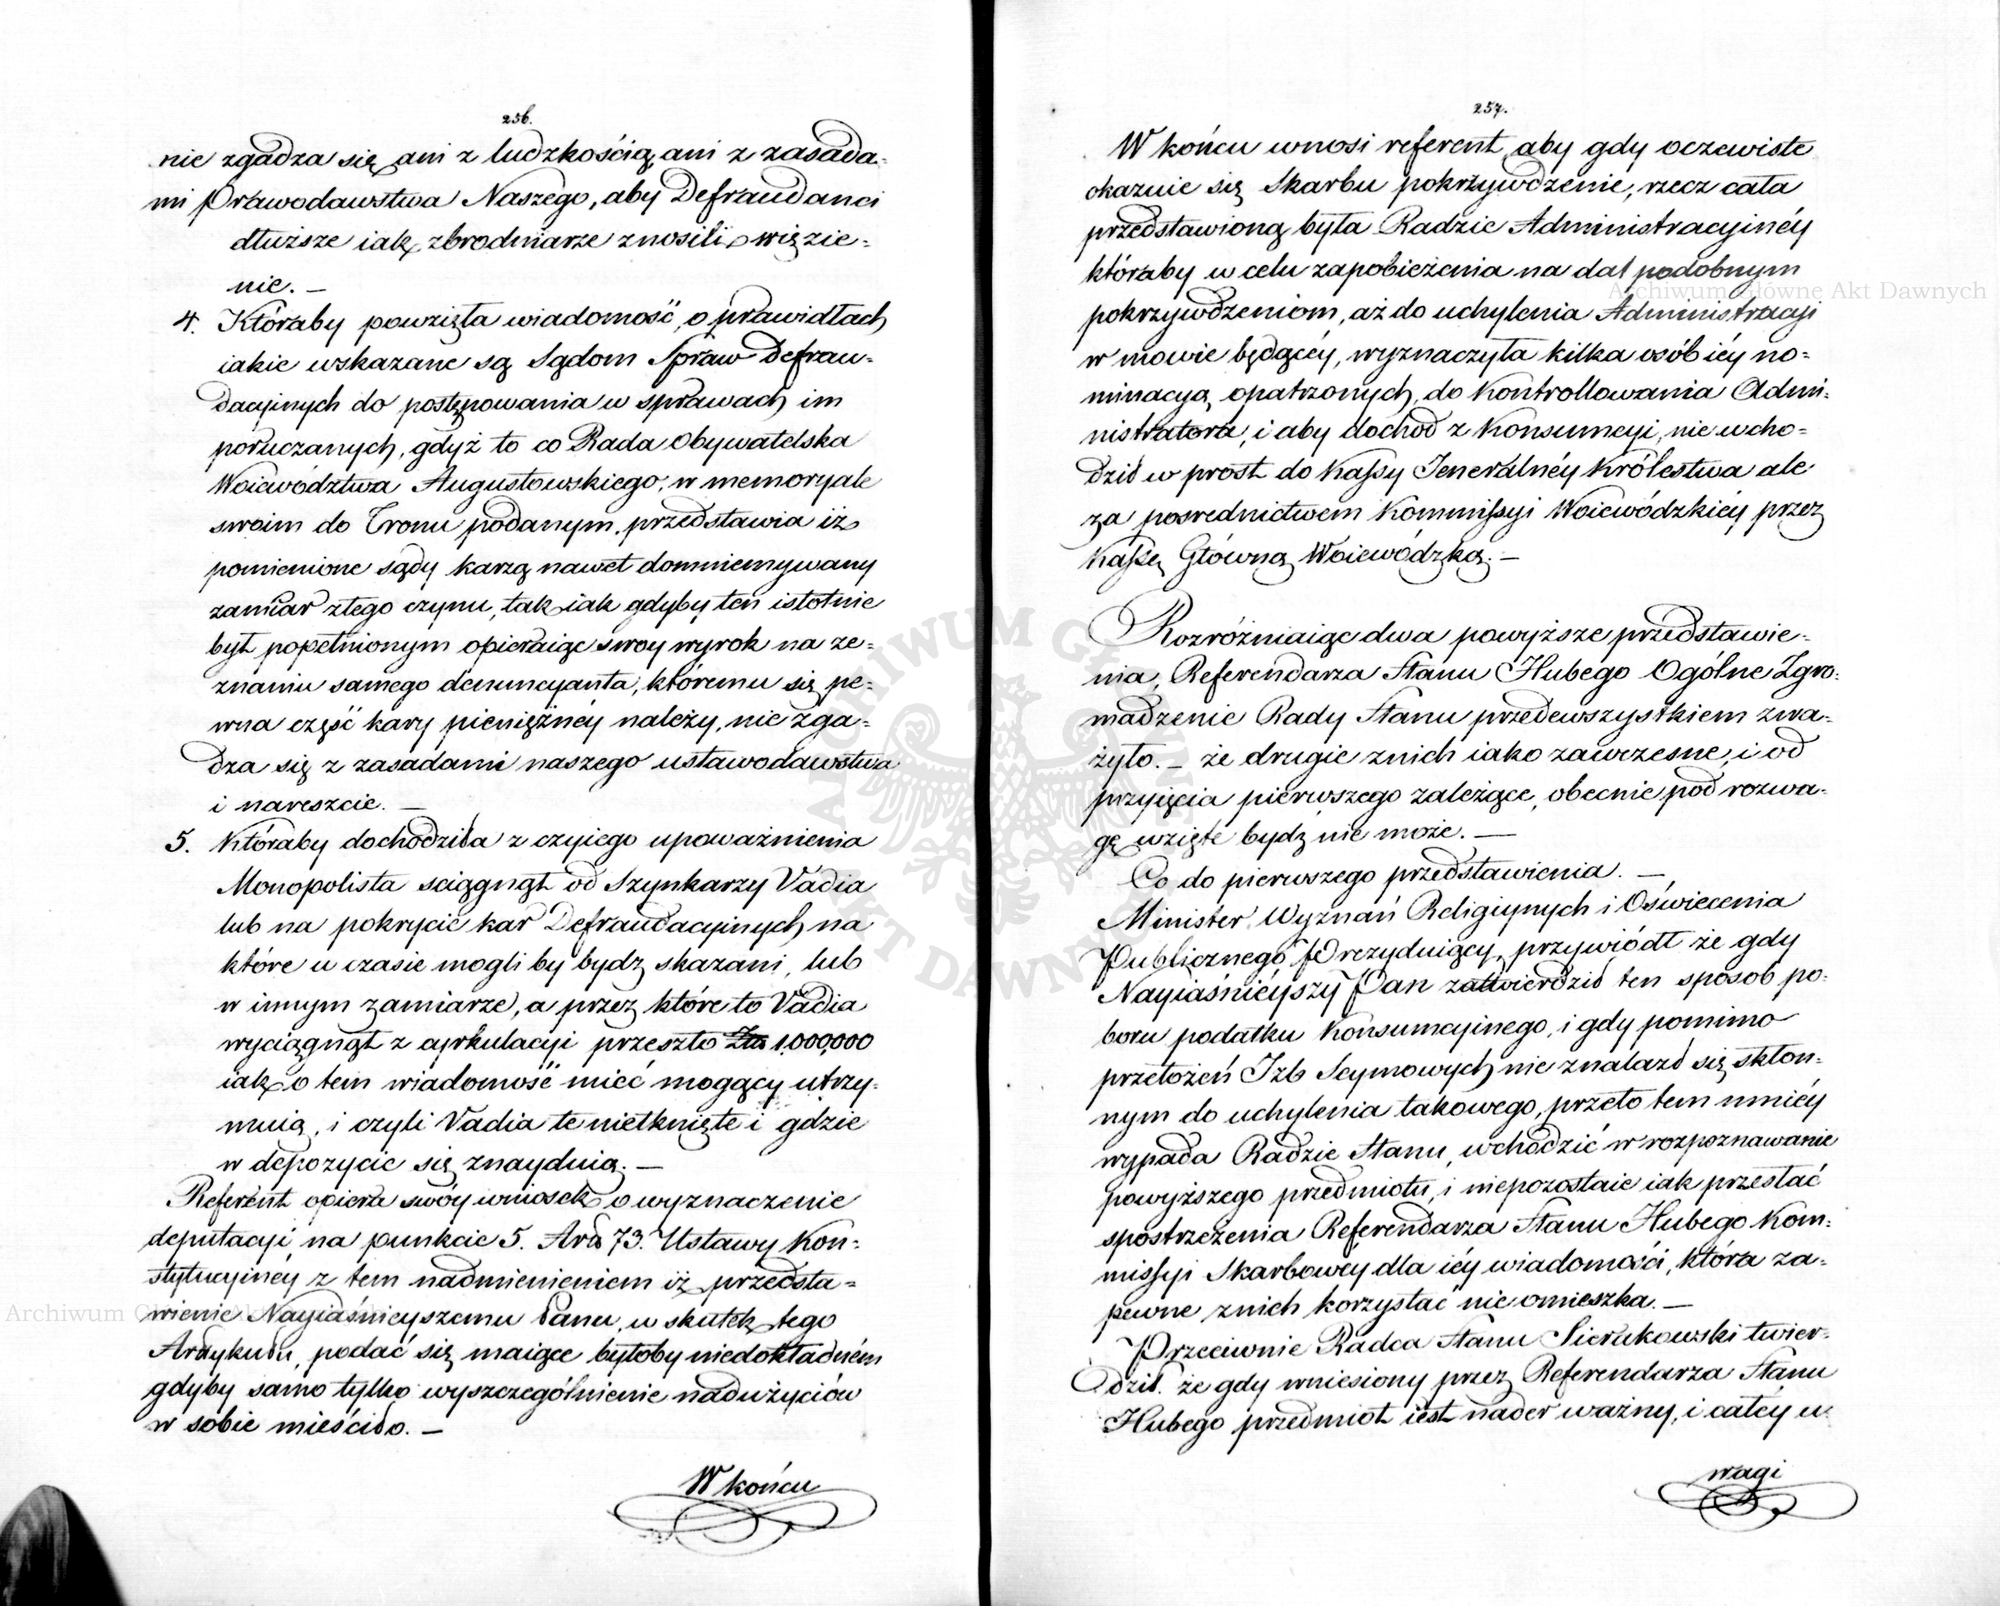 256.
nie zgadza się ani z ludzkością ani z zasada-
mi Prawodawstwa Naszego, aby Defraudanci
dłuższe iak zbrodniarze znosili więzie-
nie. —
4. Któraby powzięła wiadomość o prawidłach
iakie wskazane są Sądom Spraw Defrau-
dacyinych do postępowania w sprawach im
poruczanych, gdyż to co Rada Obywatelska
Woiewództwa Augustowskiego, w memoryale
swoim do Tronu podanym, przedstawia iż
pomienione sądy karzą nawet domniemywany
zamiar złego czynu, tak iak gdyby ten istotnie
był popełnionym opieraiąc swoy wyrok na ze-
znaniu samego denuncyanta, któremu się pe-
wna część kary pieniężnéy należy, nie zga-
dza się z zasadami naszego ustawodawstwa
i nareszcie. —
5. Któraby dochodziła z czyiego upoważnienia
Monopolista sciągnął od Szynkarzy Vadia
lub na pokrycie kar Defraudacyinych na
które w czasie mogli by bydź skazani, lub
w innym zamiarze, a przez które to Vadia
wyciągnął z cyrkulacyi przeszło 1,000,000
iak o tem wiadomość mieć mogący utrzy-
muią, i czyli Vadia te nietknięte i gdzie
w depozycie się znayduią. —
Referent opiera swóy wniosek o wyznaczenie
deputacyi na punkcie 5. Art 73. Ustawy Kon-
stytucyinéy z tem nadmienieniem iż przedsta-
wienie Nayiaśnieyszemu Panu, w skutek tego
Artykułu, podać się maiące byłoby niedokładném
gdyby samo tylko wyszczególnienie nadużyciów
w sobie mieściło. —
W końcu
257.
W końcu wnosi referent aby gdy oczewiste
okazuie się Skarbu pokrzywdzenie, rzecz cała
przedstawioną była Radzie Administracyinéy
któraby w celu zapobieżenia na dal podobnym
pokrzywdzeniom, aż do uchylenia Administracyi
w mowie będącéy, wyznaczyła kilka osób iéy no-
minacyą opatrzonych, do kontrollowania Admi-
nistratora, i aby dochod z Konsumcyi, nie wcho-
dził w prost do Kassy Jeneralnéy Królestwa ale
za posrednictwem Kommissyi Woiewódzkiéy przez
Kassę Główną Woiewódzką. —
Rozróżniaiąc dwa powyższe przedstawie-
nia, Referendarza Stanu Hubego Ogólne Zgro-
madzenie Rady Stanu przedewszystkiem zwa-
żyło. — że drugie z nich iako zawczesne, i od
przyięcia pierwszego zależące, obecnie pod rozwa-
gę wzięte bydź nie może. —
Co do pierwszego przedstawienia. —
Minister Wyznań Religiynych i Oświecenia
Publicznego Prezyduiący, przywiódł że gdy
Nayiaśniéyszy Pan zatwierdził ten sposob po-
boru podatku Konsumcyinego, i gdy pomimo
przełożeń Izb Seymowych nie znalazł się skłon-
nym do uchylenia takowego, przeto tem mniéy
wypada Radzie Stanu, wchodzić w rozpoznawanie
powyższego przedmiotu, i niepozostaie iak przesłać
spostrzeżenia Referendarza Stanu Hubego Kom-
missyi Skarbowey dla iéy wiadomości, która za-
pewne z nich korzystać nie omieszka. —
Przeciwnie Radca Stanu Sierakowski twier-
dził. że gdy wniesiony przez Referendarza Stanu
Hubego przedmiot iest nader ważny, i całéy u-
wagi
Archiwum Główne Akt Dawnych
ARCHIWUM GŁÓWNE AKT DAWNYCH